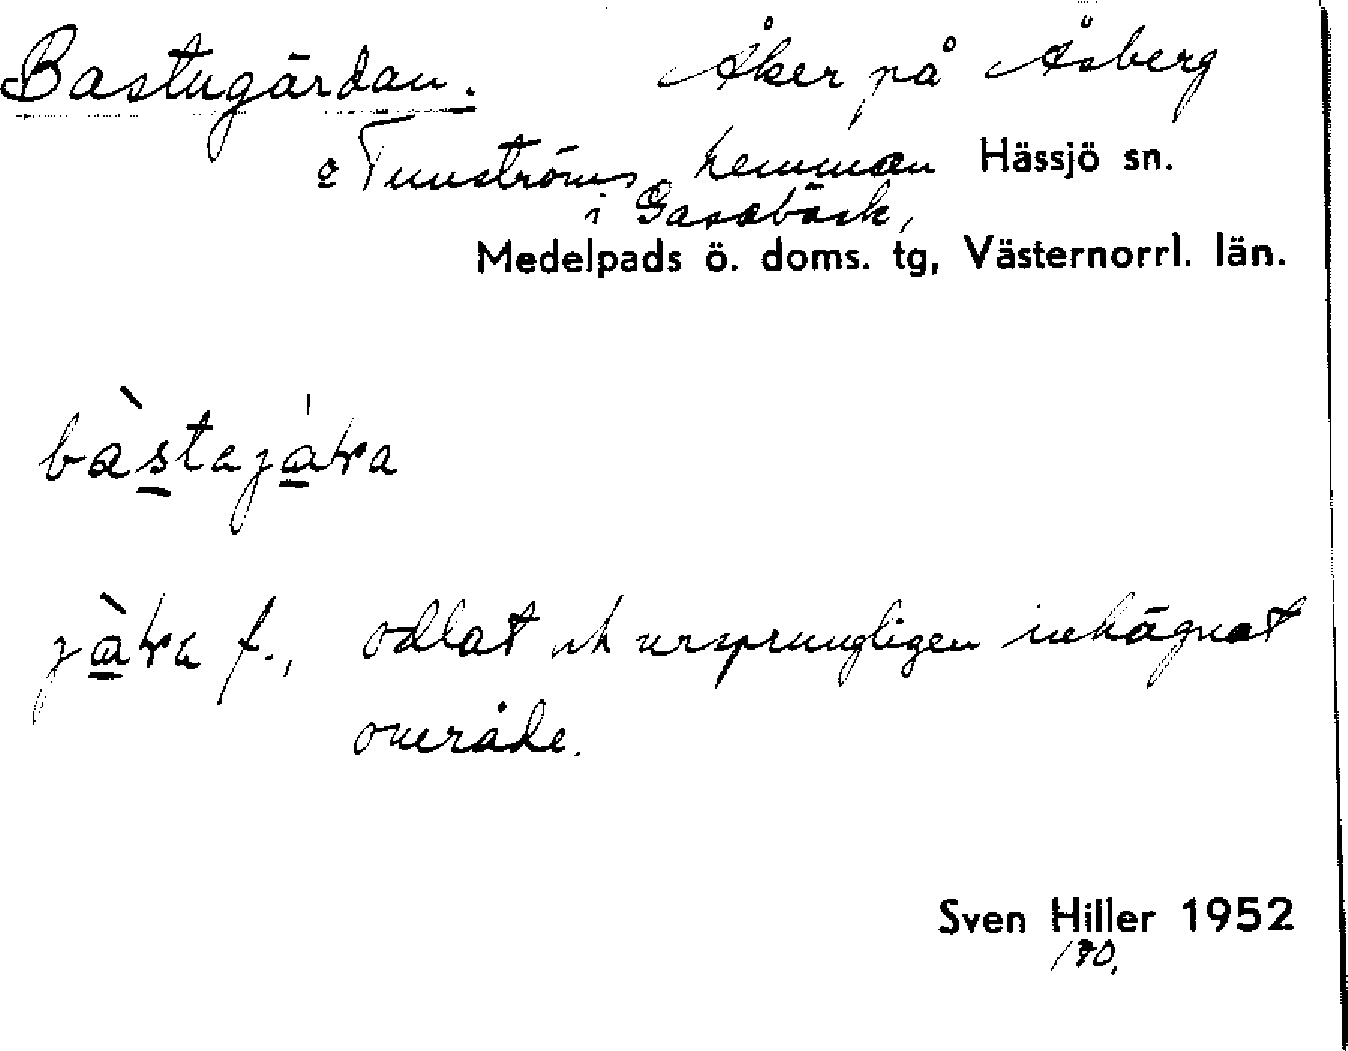 Bastugärdan. Åker på Åsberg
o Tunströms hemman Hässjö sn.
i Gasabäck,
Medelpads ö. doms. tg, Västernorrl. län.
odlat och ursprungligen inhägnat
område.
Sven Hiller 1952